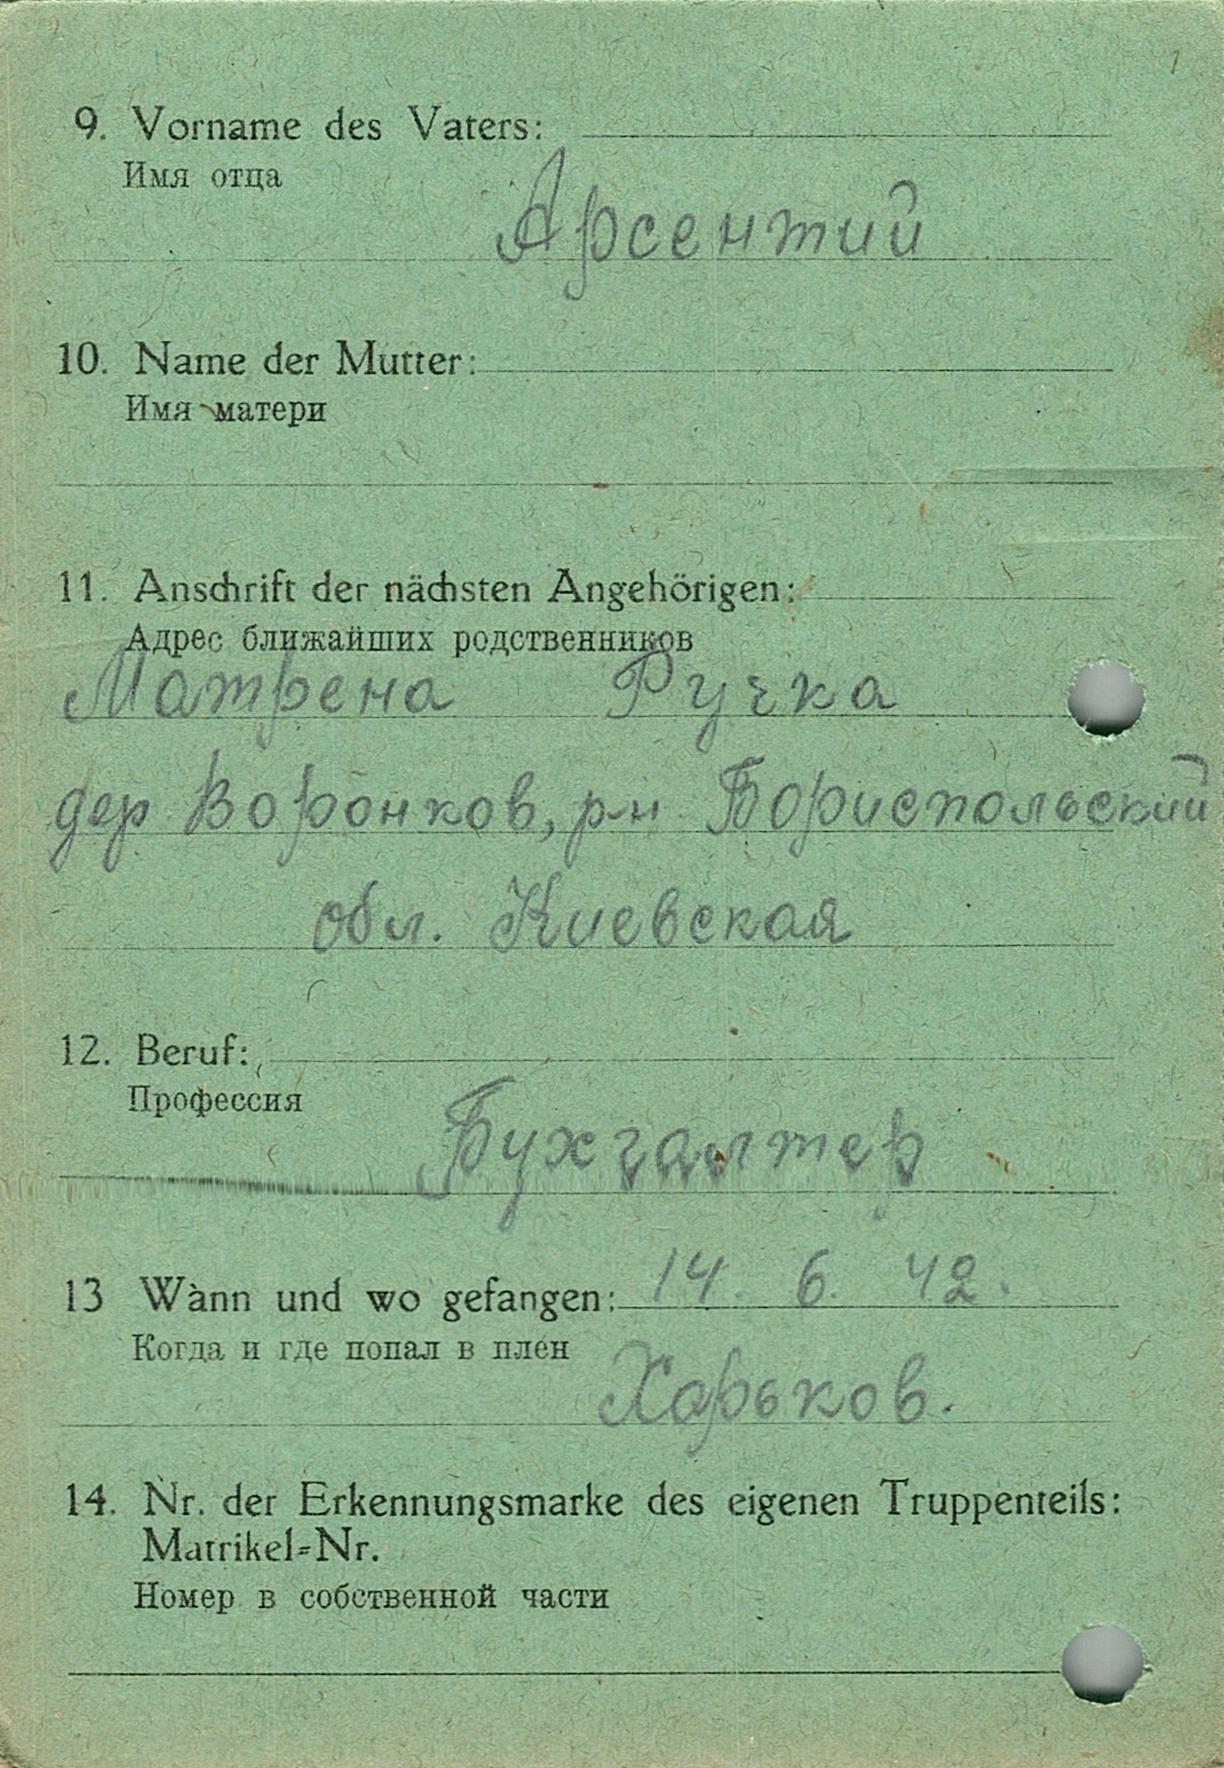 9. Vorname des Vaters:
Имя отца
Арсентий
10. Name der Mutter:
Имя матери
11. Anschrift der nächsten Angehörigen:
Адрес ближайших родственников
Матрена Ручка
дер Воронков, р-н Бориспольский
обл. Киевская
12. Beruf:
Профессия
Бухгалтер
13 Wànn und wo gefangen: 14. 6. 42.
Когда и где попал в плен
Харьков.
14. Nr. der Erkennungsmarke des eigenen Truppenteils:
Matrikel-Nr.
Номер в собственной части